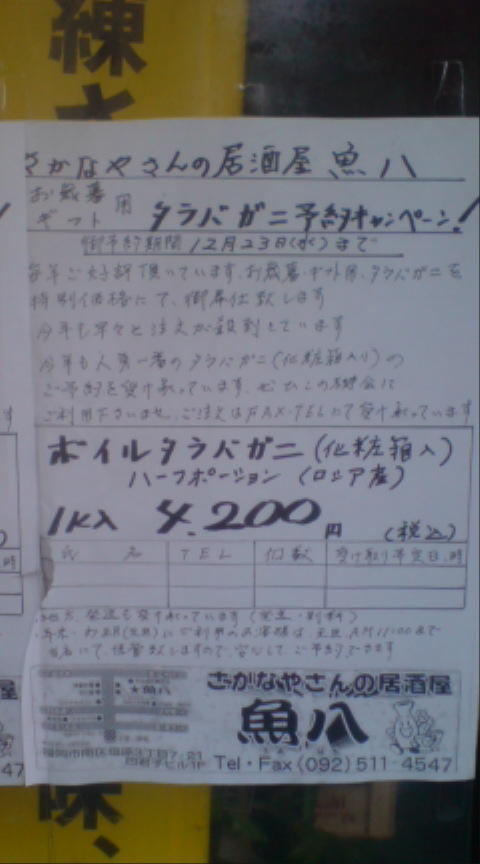 練
さかなやさんの居酒屋 魚八
お歳暮用
ギフト タラバガニ予約キャンペーン!
御予約期間 12月23日(水)まで
毎年ご好評頂いています、お歳暮・ギフト用、タラバガニを
特別価格にて、御奉仕致します
今年も早々と注文が殺到しています
今年も人気一番のタラバガニ(化粧箱入り)の
ご予約を受け承っています、ぜひこの機会に
ご利用下さいませ、ご注文はFAX・TELにて受け承っています
ボイルタラバガニ(化粧箱入)
ハーフポーション (ロシア産)
1K入 4.200円 (税込)
氏 名 TEL 個数 受け取り予定日、時
地方、発送も受け承っています(発送・別料)
年末・お正月(元旦)にご利用のお客様は、元旦、AM11:00まで
当店にて、保管致しますので、安心して、ご予約できます
★魚八
さかなやさんの居酒屋
魚八
福岡市南区塩原3丁目7-21
四君子ビル1F Tel・Fax (092) 511-4547
味、